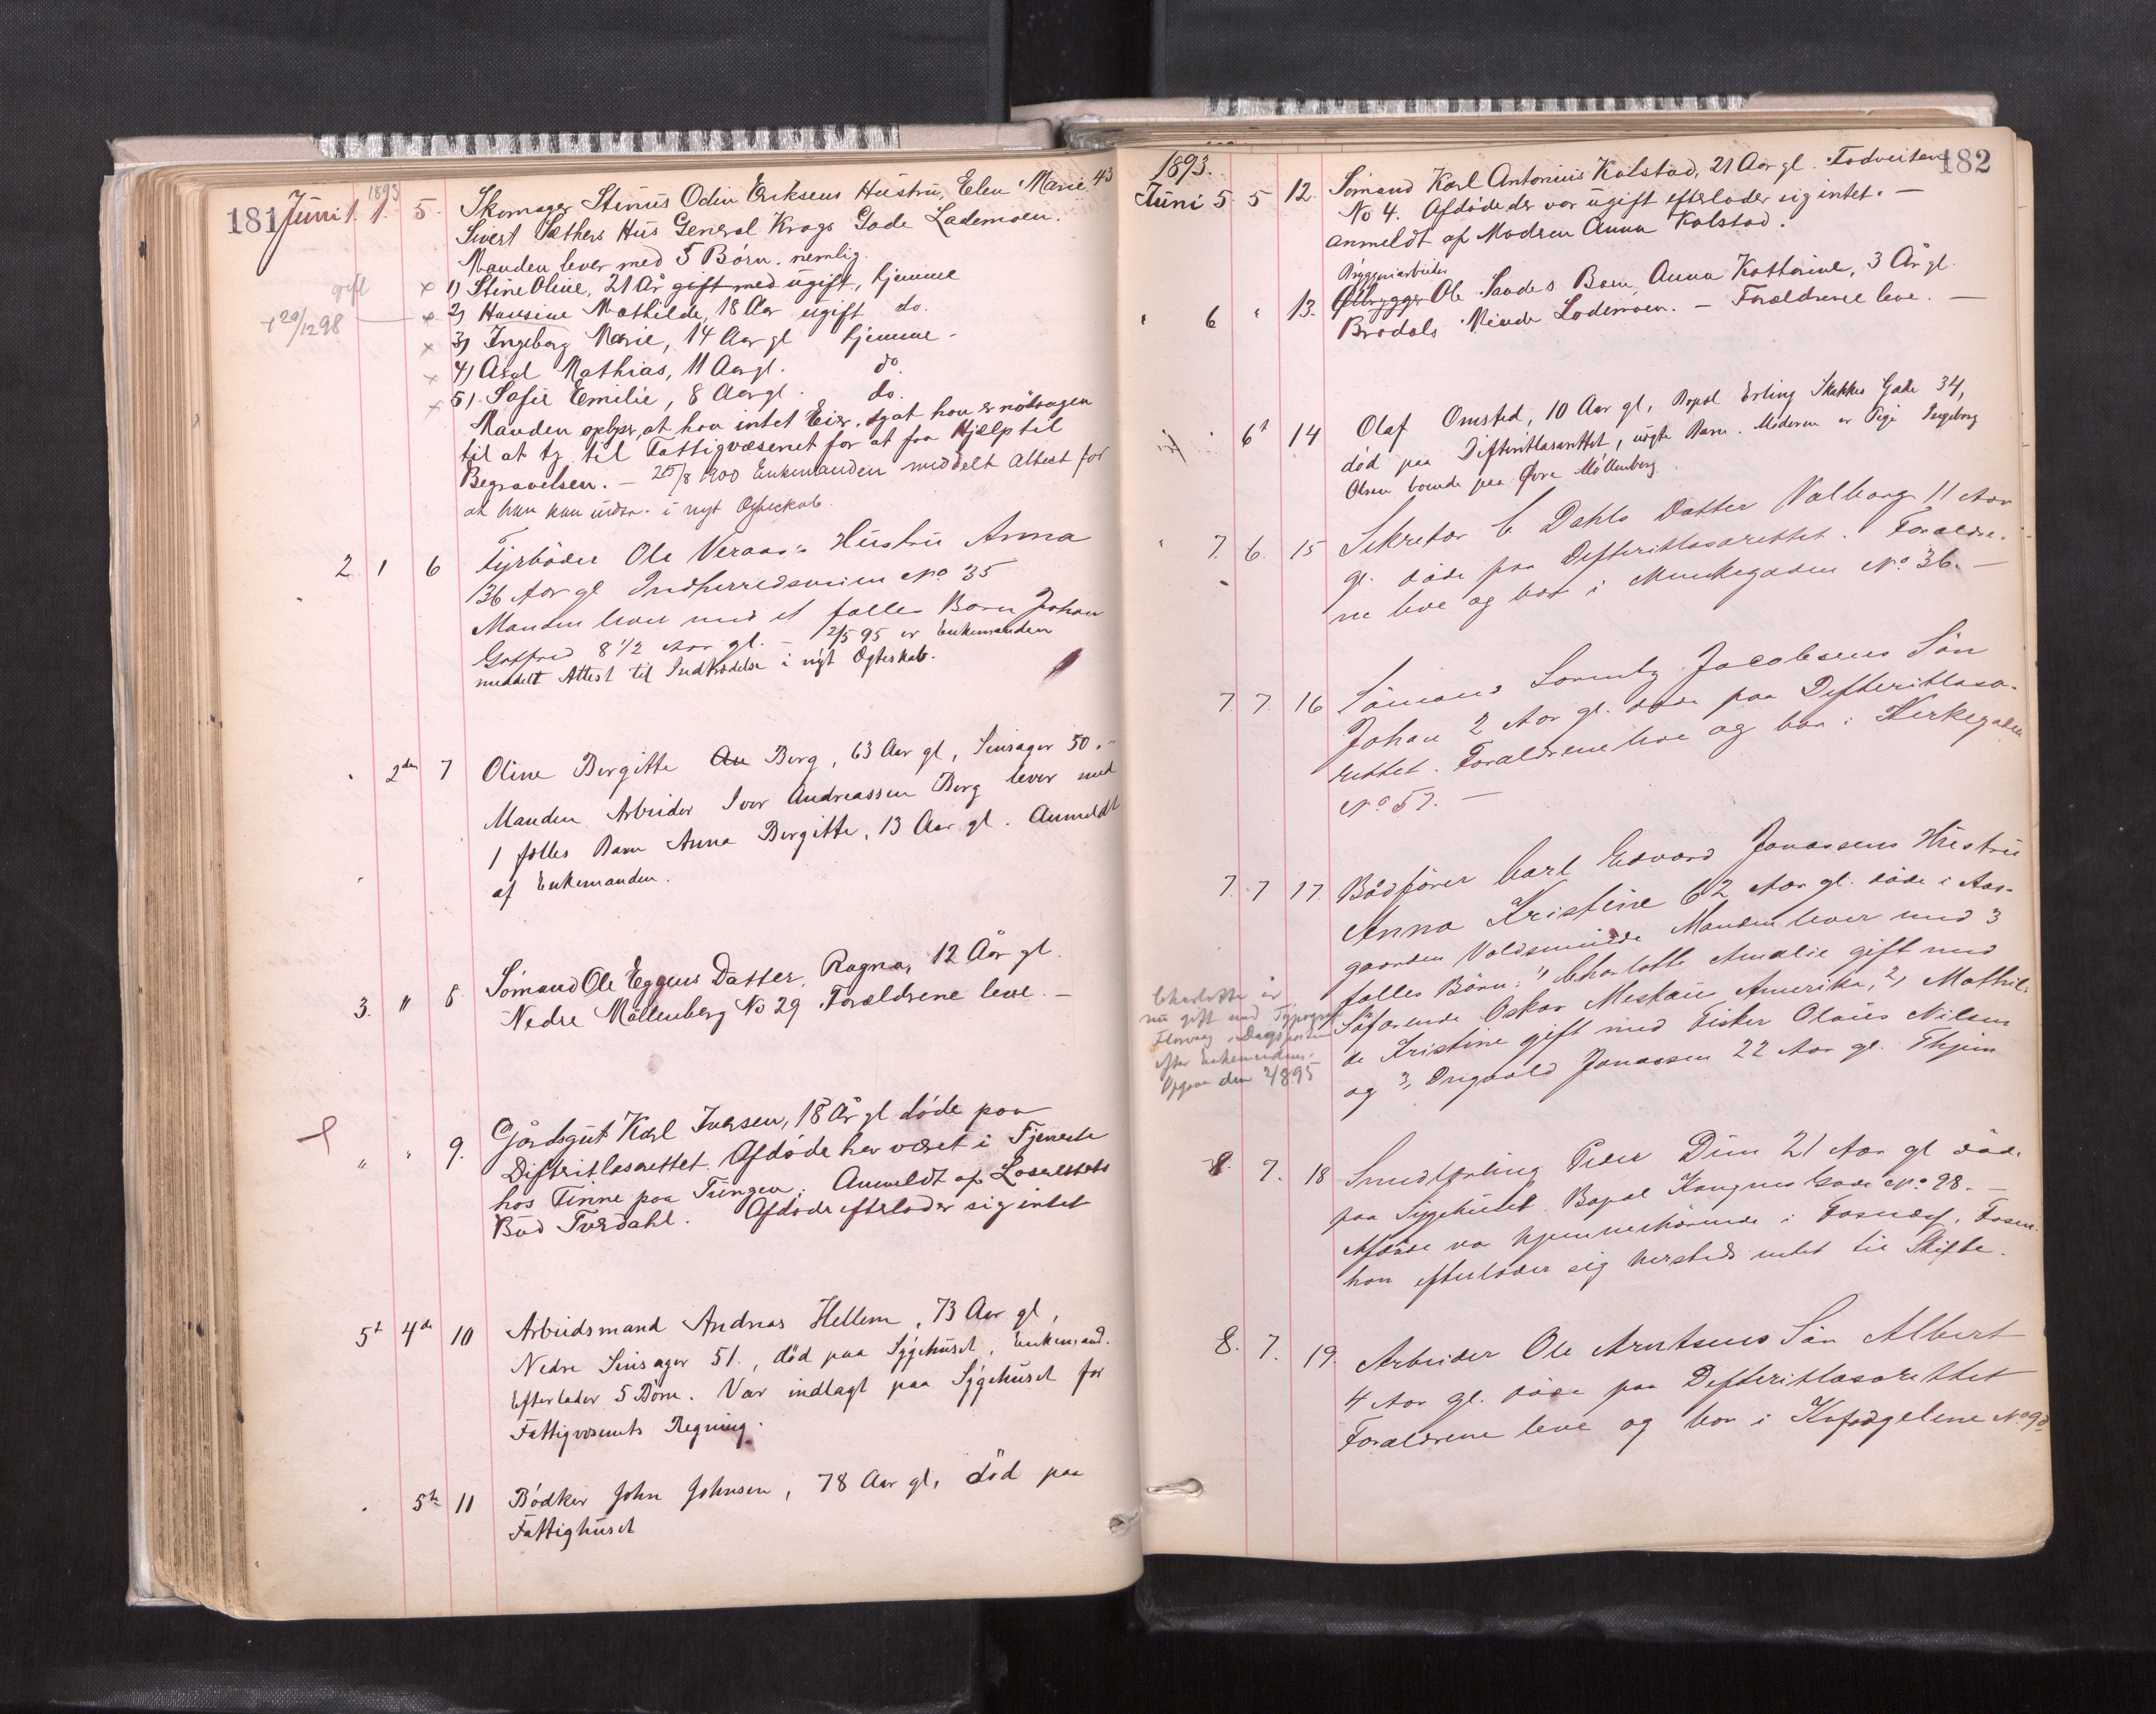 181 Juni 1. 1893 1. 5. Skomager Stinius Odin Eriksens Hustru Elen Marie 43
Sivert Sæthers Hus General Krags Gade Lademoen.
Manden lever med 5 Børn. nemlig.
gift × 1) Stine Oline, 21 År gift med ugift, hjemme
+ 29/12 98 × 2) Hansine Mathilde, 18 Aar ugift do.
× 3) Ingeborg Marie, 14 Aar gl hjemme -
× 4) Axel Mathias, 11 Aar gl. do
× 5) Sofie Emilie, 8 Aar gl. do.
Manden oplyser, at han intet Eier, og at han er nødsagen
til at ty til Fattigvæsenet for at faa Hjælp til
Begravelsen. - 25/8 1900 Enkemanden meddelt Attest for
at han kan indtr. i nyt Ægteskab.
2 1 6 Fyrbøder Ole Veraas's Hustru Anna
36 Aar gl Indherredsveien No 35
Manden lever med et fælles Barn Johan
Gotfred 8 1/2 Aar gl. - 2/5 95 er Enkemanden
meddelt Attest til Indtrædelse i nyt Ægteskab.
" 2den 7 Oline Bergitte An Berg, 63 Aar gl, Sinsager 50. -
Manden Arbeider Iver Andreassen Berg lever med
1 fælles Barn Anna Bergitte, 13 Aar gl. Anmeldt
af Enkemanden.
3. " 8 Sømand Ole Eggens Datter, Ragna, 12 År gl.
Nedre Møllenberg No 29. Forældrene leve. -
" " 9. Gårdsgut Karl Iversen, 18 År gl døde paa
Difteritlasarettet. Afdøde har været i Tjeneste
hos Finne paa Tungen. Anmeldt af Lasarettets
Bud Tverdahl. Afdøde efterlader sig intet
5t 4de 10 Arbeidsmand Andreas Hellem, 73 Aar gl,
Nedre Sinsager 51., død paa Sygehuset, Enkemand.
Efterlader 5 Børn. Var indlagt paa Sygehuset for
Fattigvæsenets Regning.
" 5te 11 Bødker John Johnsen, 78 Aar gl, død paa
Fattighuset
182
1893.
Juni 5. 5 12. Sømand Karl Antonius Kalstad, 21 Aar gl. Fodveiten
No 4. Afdøde der var ugift efterlader sig intet. -
anmeldt af Modren Anna Kalstad.
Bryggeriarbeider
" 6 " 13. Ølbrygger Ole Sandes Barn, Anna Kathrine, 3 År gl.
Brødals Minde Lademoen. - Forældrene leve. -
6t 14 Olaf Omsted, 10 Aar gl, Bopæl Erling Skakkes Gade 34,
død paa Difteritlasarettet, uægte Barn. Moderen er Pige Ingeborg
Olsen boende paa Øvre Møllenberg.
" 7. 6. 15 Sekretær C. Dahls Datter Valborg 11 Aar
gl. døde paa Difteritlasarettet. Forældre-
ne leve og bor i Munkegaden No 36. -
7. 7. 16 Sømand Lorentz Jacobsens Søn
Johan 2 Aar gl. døde paa Difteritlasa-
rettet. Forældrene leve og bor i Kirkegaden
No 57. -
7. 7 17. Bådfører Carl Edvard Jonassens Hustru
Anna Kristine 62 Aar gl. døde i Aas-
gaarden Voldsminde Manden lever med 3
fælles Børn: 1, Charlotte Amalie gift med
Søfarende Oskar Meskau Amerika, 2, Mathil-
de Kristine gift med Fisker Olaus Nilsen
og 3, Ongvald Jonassen 22 Aar gl. Thjem
Charlotte er
nu gift med Typograf
i Dagsposten
efter Enkemandens
Opgave den 2/8 95
8. 7. 18 Smedlærling Peder Duun 21 Aar gl døde
paa Sygehuset. Bopæl Kongens Gade No 98. -
Afdøde var hjemmehørende i Fosnæs, Fosen.
han efterlader sig hersteds intet til Skifte.
8. 7. 19. Arbeider Ole Arntsens Søn Albert
4 Aar gl. døde paa Difteritlasarettet
Forældrene leve og bor i